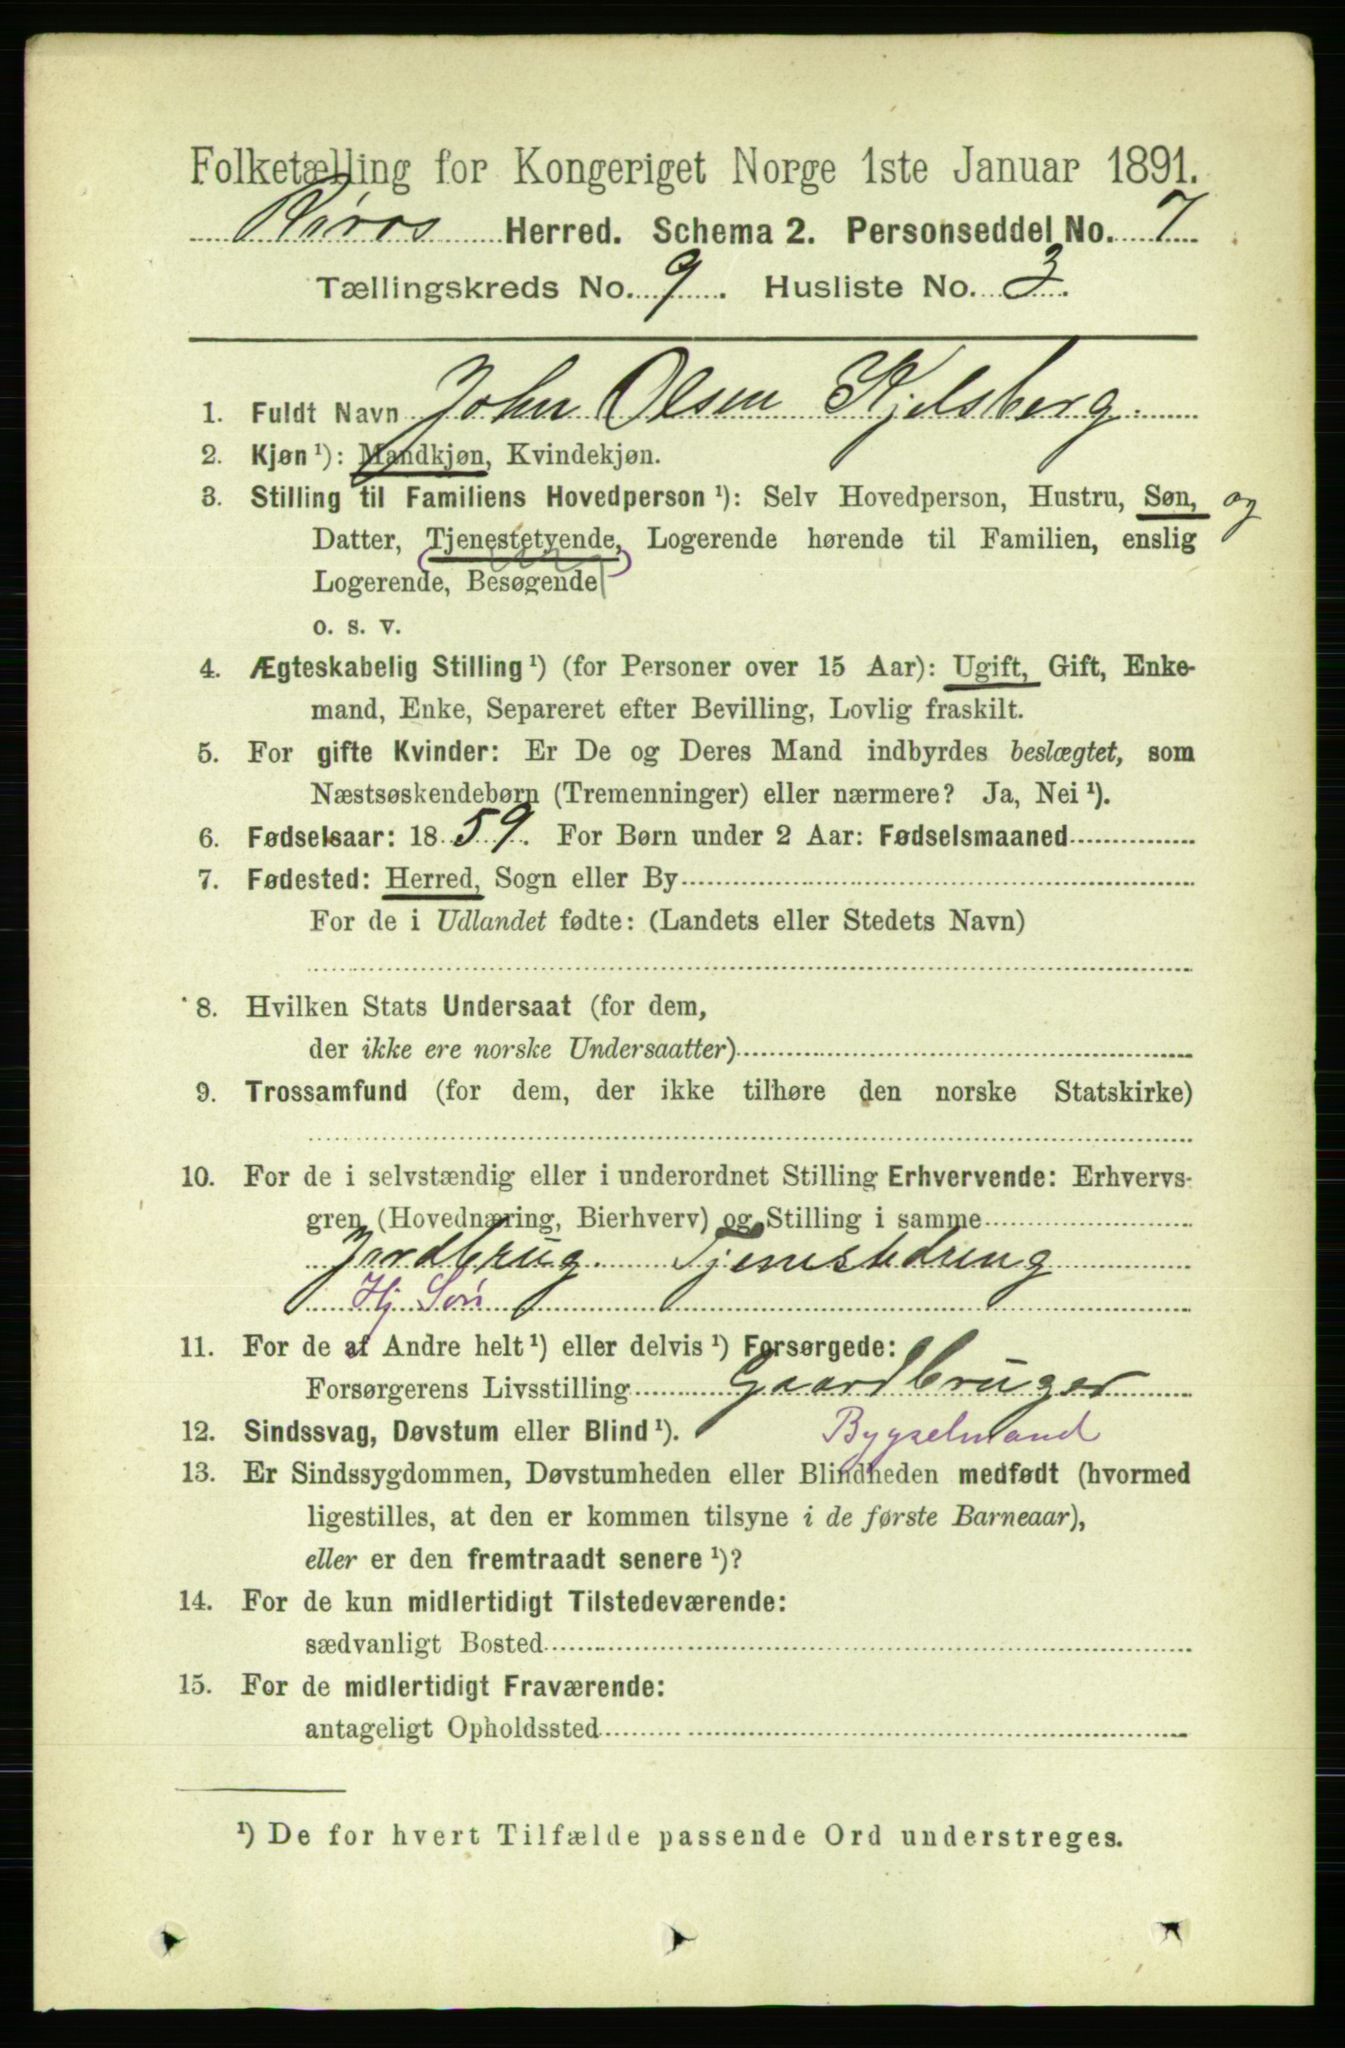 Folketælling for Kongeriget Norge 1ste Januar 1891.
Røros Herred. Schema 2. Personseddel No. 7
Tællingskreds No. 9. Husliste No. 3.
1. Fuldt Navn John Olsen Kjelsberg.
2. Kjøn ¹): Mandkjøn, Kvindekjøn.
3. Stilling til Familiens Hovedperson ¹): Selv Hovedperson, Hustru, Søn, og
Datter, Tjenestetyende, Logerende hørende til Familien, enslig
Logerende, Besøgende
o. s. v.
4. Ægteskabelig Stilling ¹) (for Personer over 15 Aar): Ugift, Gift, Enke-
mand, Enke, Separeret efter Bevilling, Lovlig fraskilt.
5. For gifte Kvinder: Er De og Deres Mand indbyrdes beslægtet, som
Næstsøskendebørn (Tremenninger) eller nærmere? Ja, Nei ¹).
6. Fødselsaar: 1859. For Børn under 2 Aar: Fødselsmaaned
7. Fødested: Herred, Sogn eller By
For de i Udlandet fødte: (Landets eller Stedets Navn)
8. Hvilken Stats Undersaat (for dem,
der ikke ere norske Undersaatter)
9. Trossamfund (for dem, der ikke tilhøre den norske Statskirke)
10. For de i selvstændig eller i underordnet Stilling Erhvervende: Erhvervs-
gren (Hovednæring, Bierhverv) og Stilling i samme
Jordbrug. Tjenestedreng
Hj Søn
11. For de af Andre helt ¹) eller delvis ¹) Forsørgede:
Forsørgerens Livsstilling Gaardbruger
12. Sindssvag, Døvstum eller Blind ¹). Bygselmand
13. Er Sindssygdommen, Døvstumheden eller Blindheden medfødt (hvormed
ligestilles, at den er kommen tilsyne i de første Barneaar),
eller er den fremtraadt senere ¹)?
14. For de kun midlertidigt Tilstedeværende:
sædvanligt Bosted
15. For de midlertidigt Fraværende:
antageligt Opholdssted
¹) De for hvert Tilfælde passende Ord understreges.